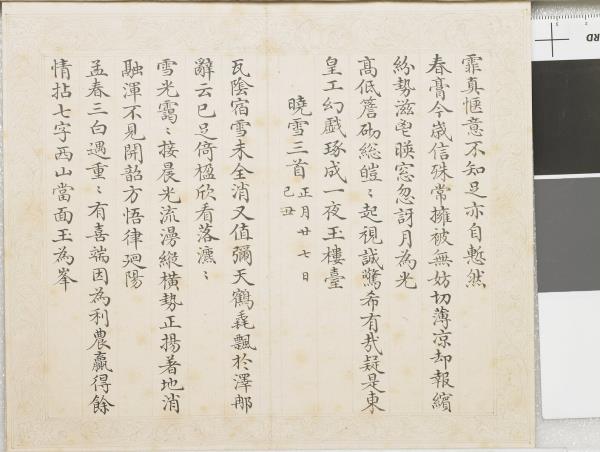 霏真愜意不知足亦自慙然
春膏今歲信殊常擁被無妨切薄凉却報繽
紛勢滋皂暎窓忽訝月為光
高低簷砌總皚〻起視誠驚希有哉疑是東
皇工幻戲琢成一夜玉樓臺
曉雪三首 正月廿七日己丑
瓦陰宿雪未全消又值彌天鶴毳飄於澤那
辭云已足倚楹欣看落瀌〻
雪光靄〻接晨光流漫縱橫勢正揚著地消
融渾不見開韶方悟律廻陽
孟春三白遇重〻有喜端因為利農贏得餘
情拈七字西山當面玉為峯
CORD